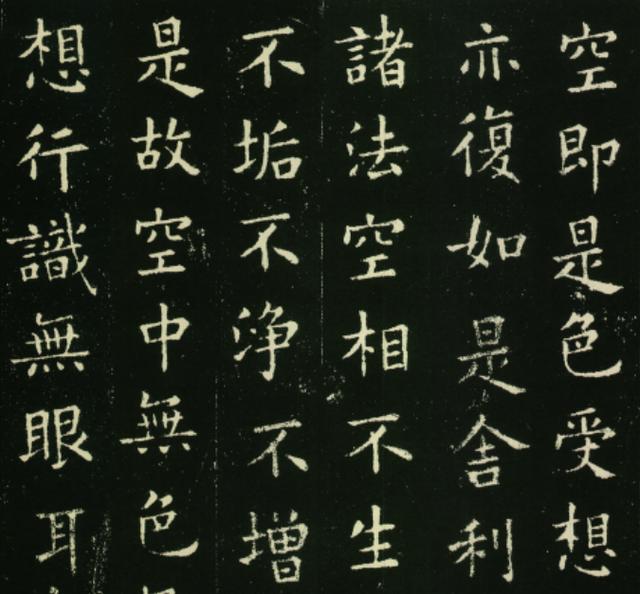 空即是色受想
亦復如是舍利
諸法空相不生
不垢不淨不增
是故空中無色
想行識無眼耳